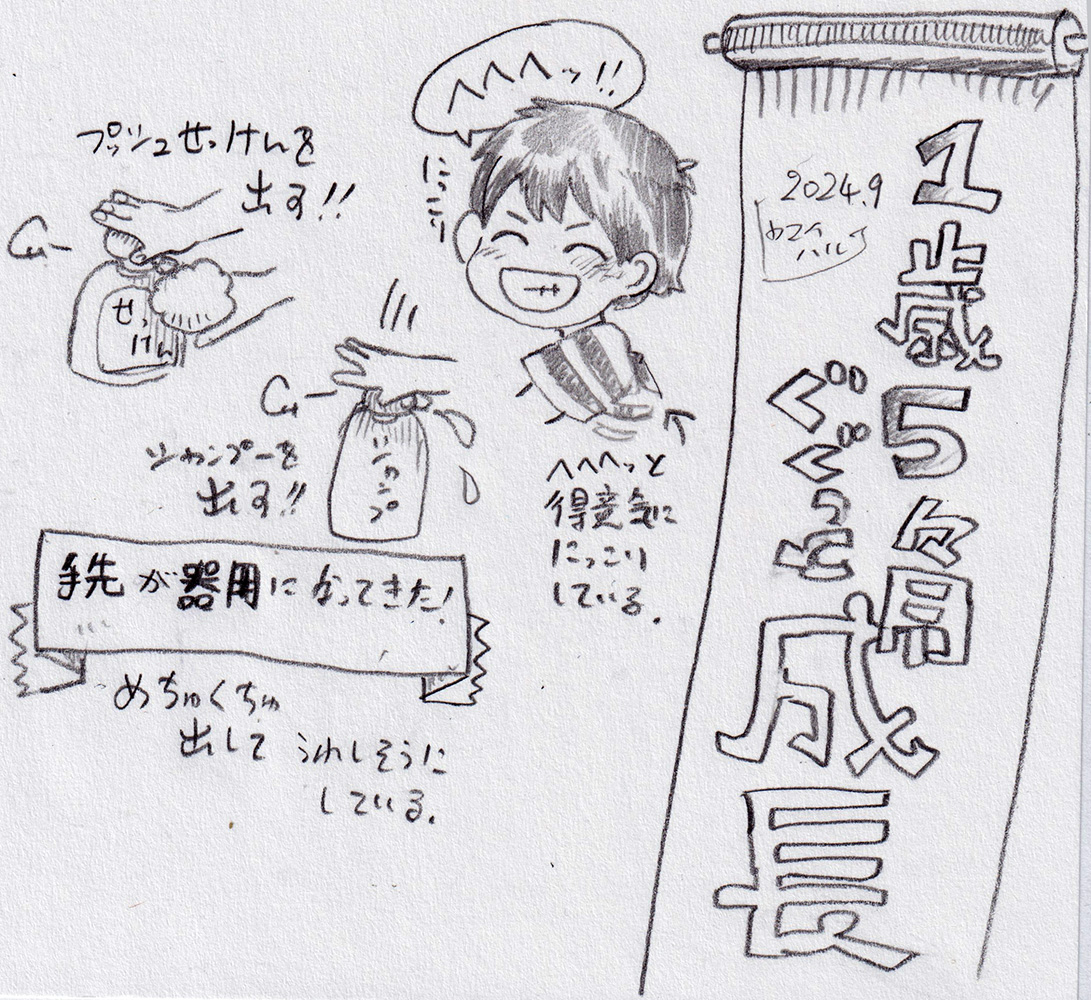 1歳5ヶ月
ぐぐっと
成長
2024.9
へへへッ!!
にっこり
へへへっと
得意気に
にっこり
している。
プッシュせっけんを
出す!!
せっ
けん
シャンプーを
出す!!
シャンプ
手先が器用になってきた!
めちゃくちゃ
出して
うれしそうに
している。